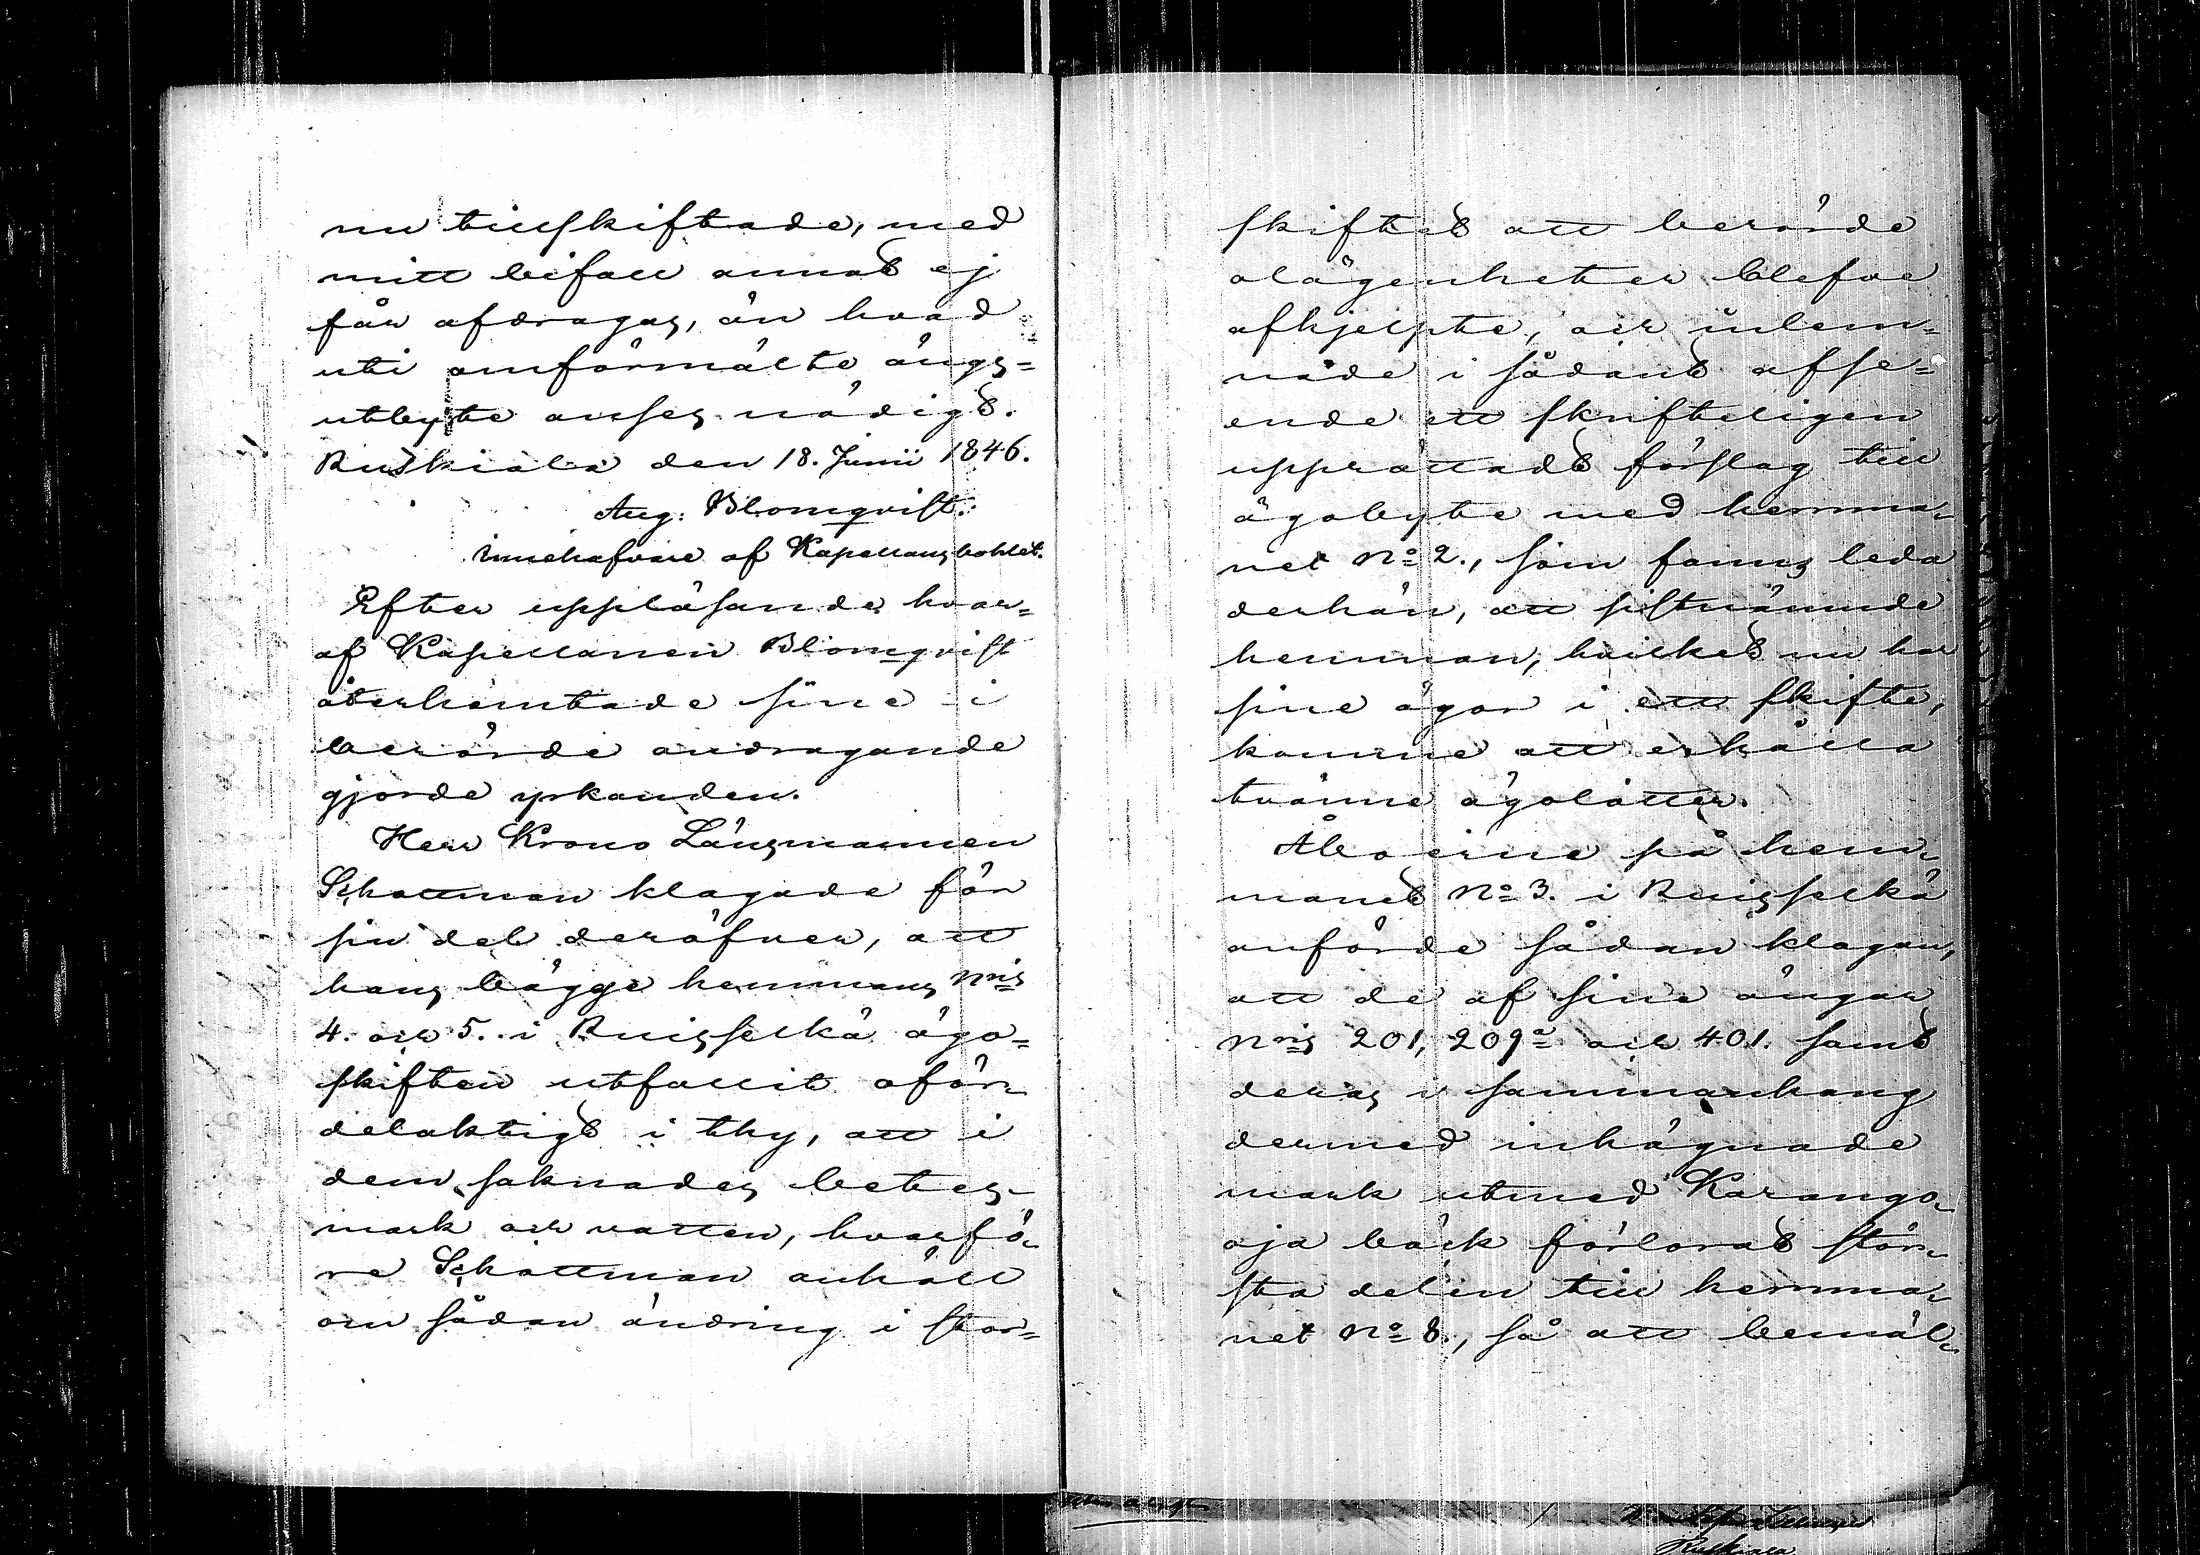 nu tillskiftade, med
mitt bifall annat ej
får afdragas, än hvad
uti omförmälte ängs=
utbyte anses nödigt.
Ruskiala den 18. Junii 1846.
Aug: Blomqvist.
Innehafvare af Kapellansbohlet.
Efter uppläsande hvar=
af Kapellanen Blomqvist
återhemtade sine i
berörde andragande
gjorde yrkanden.
Herr Krono Länsmannen
Schattman klagade för
sin del deröfver, att
hans bägge hemmans Nris
4. och 5. i Ruisselkä ägo=
skiften utfallit oför=
delaktigt i thy, att i
dem saknades betes=
mark och vatten, hvarfö=
re Schattman anhöll
om sådan ändring i stor=
skiftet att berörde
olägenheter blefve
afhjelpte, och inlem=
nade i sådant afse=
ende ett skrifteligen
upprättadt förslag till
ägobyte med hemma=
net No 2., som fanns leda
derhän, att sistnämnde
hemman, hvilket nu har
sine ägor i ett skifte,
komme att erhålla
tvänne ägolotter.
Åboerne på hem=
manet No 3. i Ruisselkä
anförde sådan klagan,
att de af sine ängar
Nris 201, 209a och 401. samt
deras i sammanhang
dermed inhägnade
mark utmed Karango=
oja bäck förlorat stör=
sta delen till hemma=
net No 8., så att bemäl=
Ruskiala